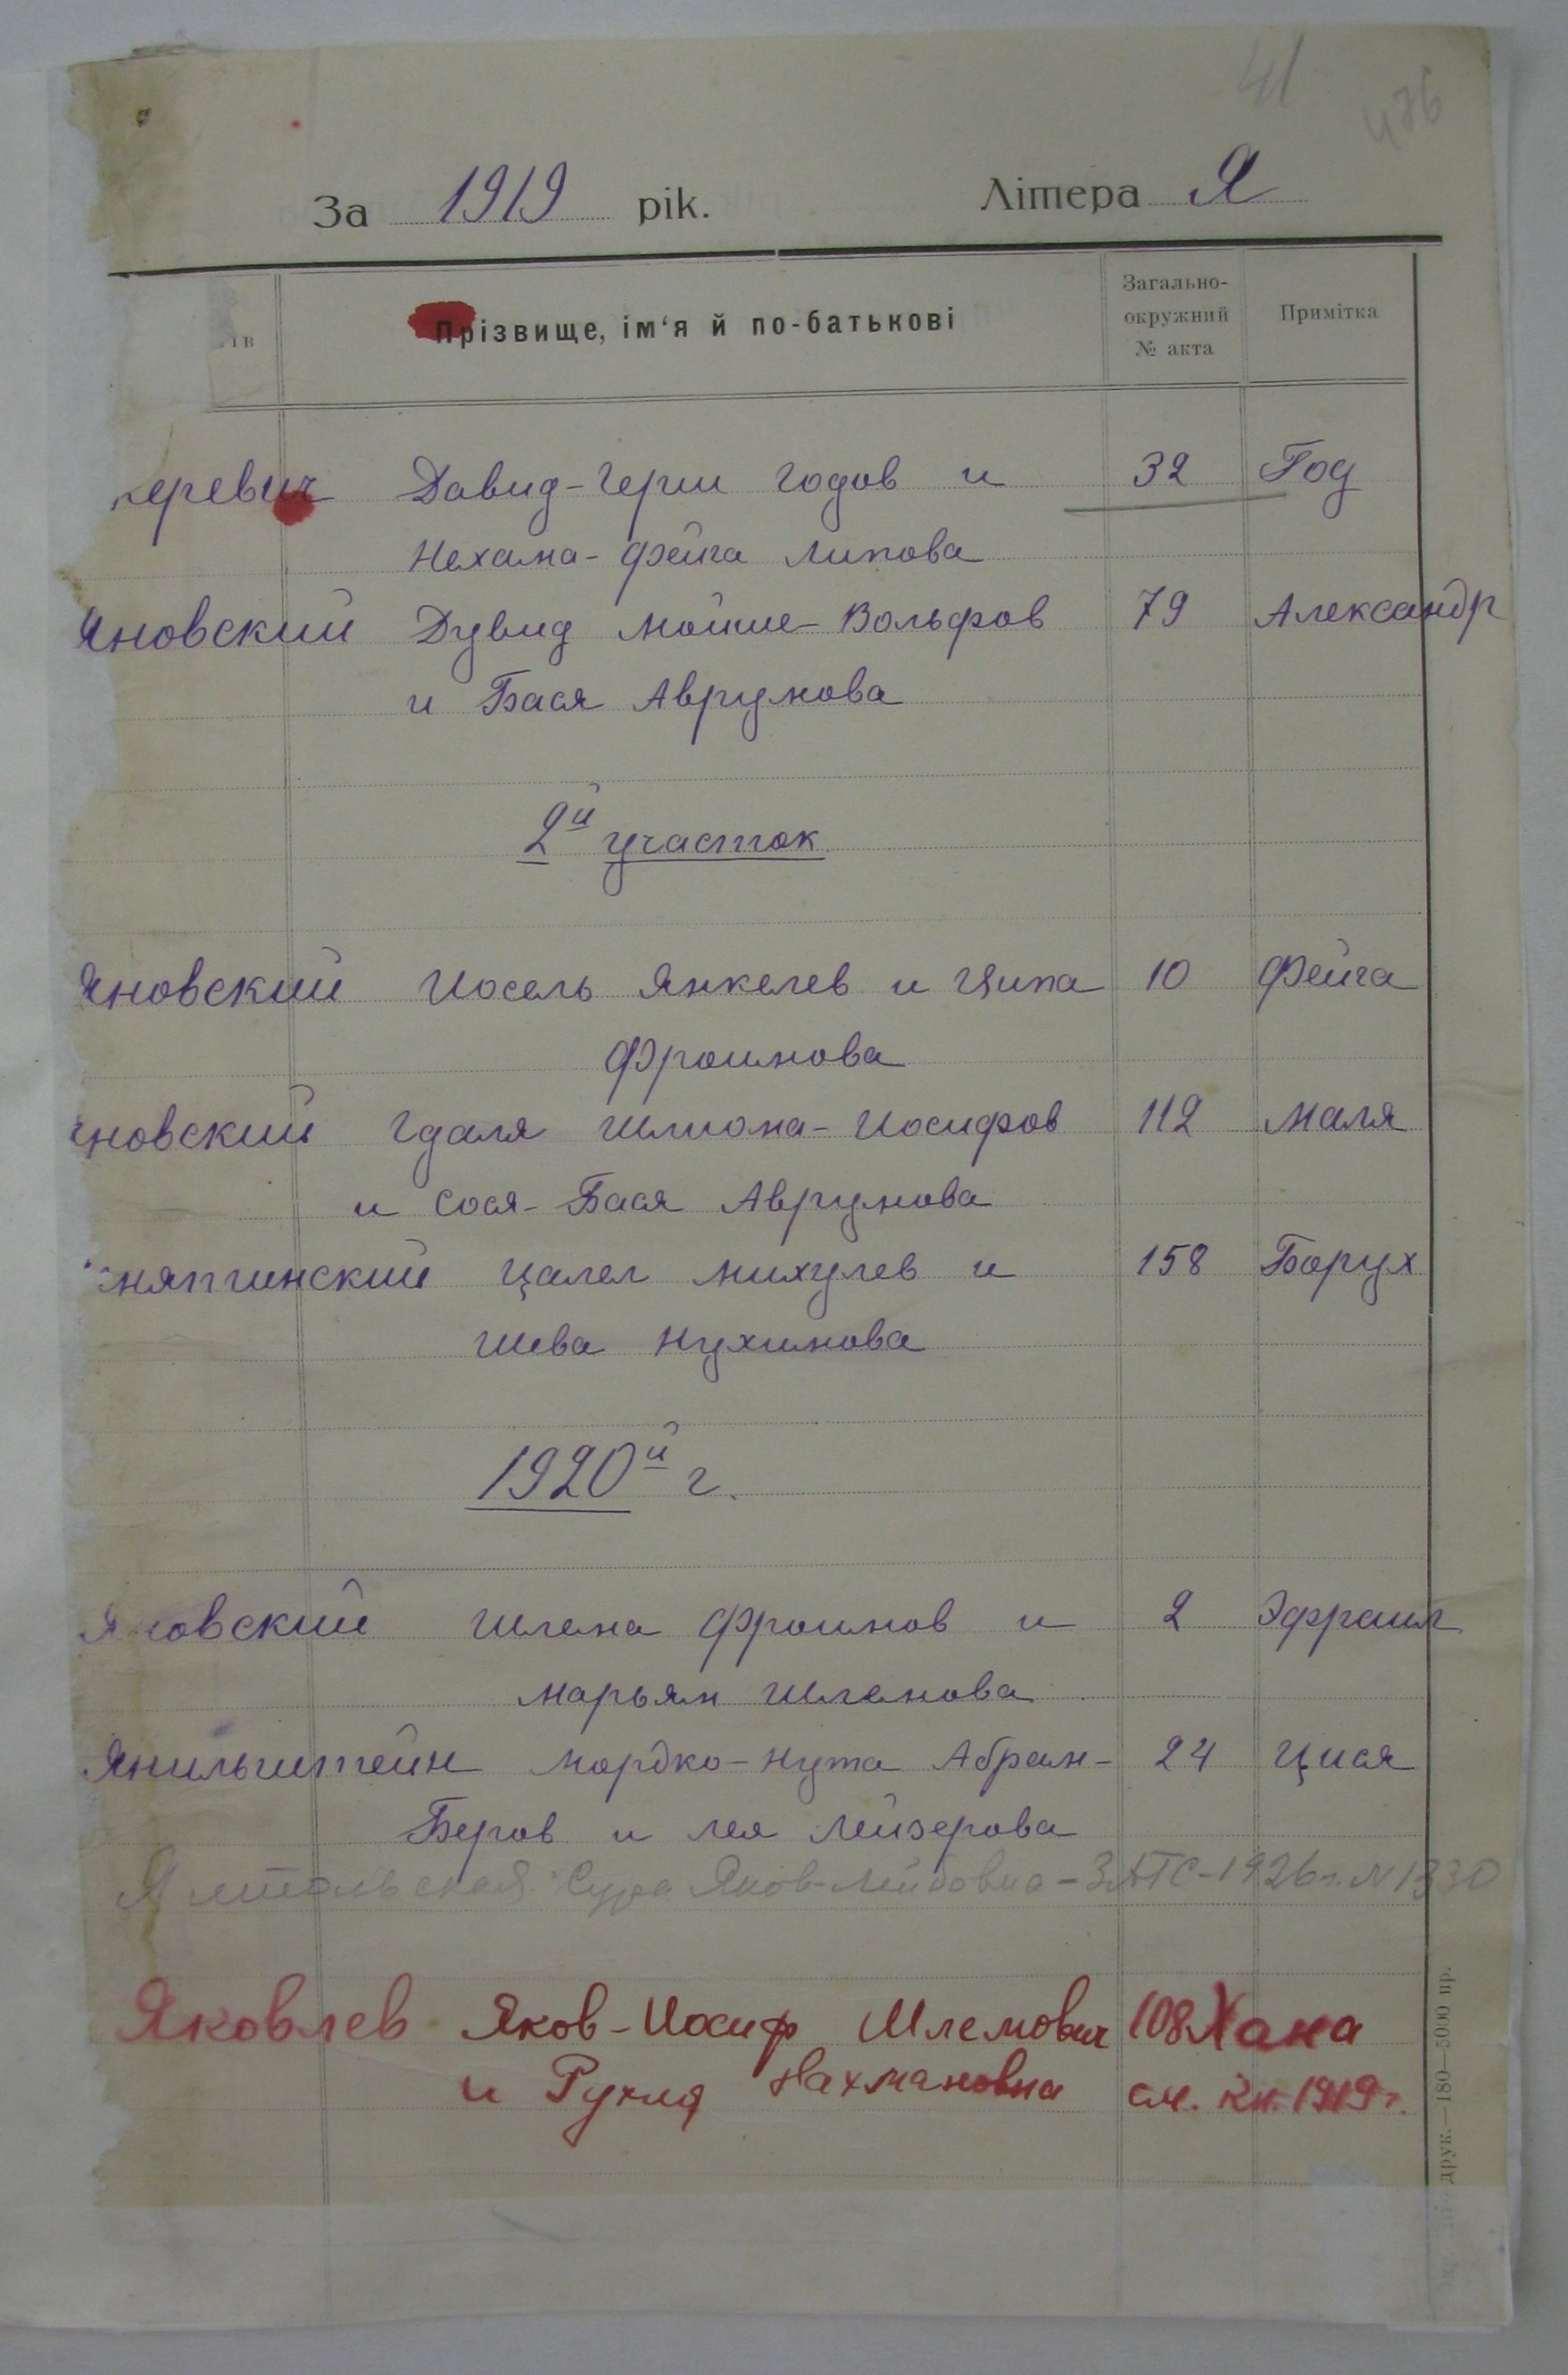 41
476
За 1919 рік. Літера Я
ів Прізвище, ім‘я й по-батькові Загально-окружний № акта Примітка
керевич Давид-Герш Годов и 32 Год
Нехама-Фейга Липова
Яновский Дувид Мойше-Вольфов 79 Александр
и Бася Аврумова
2й участок
Яновский Иосель Янкелев и Ципа 10 Фейга
Фроимова
новский Гдаля Шлиома-Иосифов 112 Маля
и Сося-Бася Аврумова
няпинский Цалел Михулев и 158 Борух
Шева Нухимова
1920й г.
Яновский Шлема Фроимов и 2 Эфраим
Марьям Шлемова
Янильштейн Мордко-Нута Абрам- 24 Цися
Беров и Лея Лейзерова
Сура Яков-Лейбовна - ЗАГС-1926 г. N 1330
Яковлев Яков-Иосиф Шлемович 108 Хана
и Рухля Нахмановна см. кн. 1919 г.
друк.—180—5000 пр.